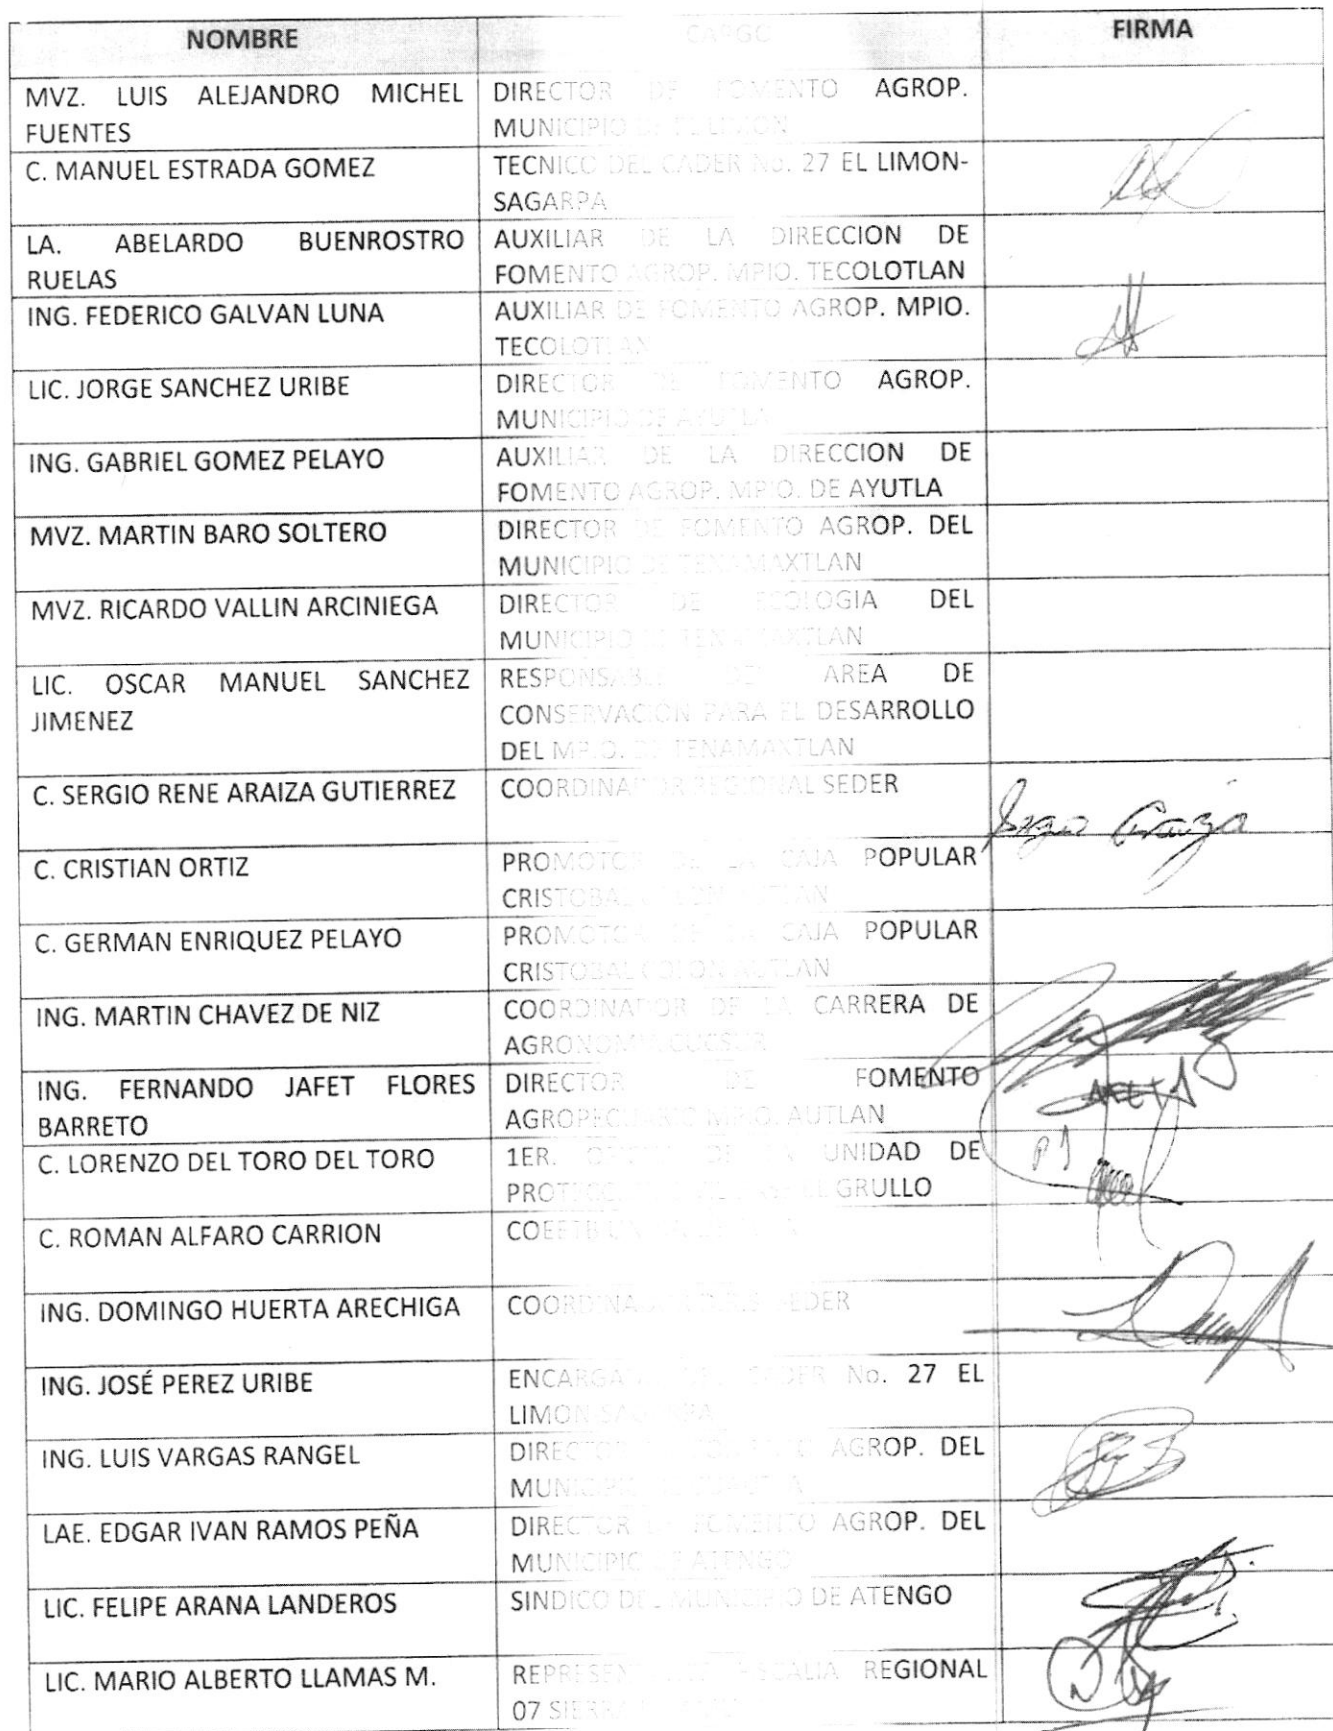 NOMBRE CARGO FIRMA
MVZ. LUIS ALEJANDRO MICHEL FUENTES
DIRECTOR DE FOMENTO AGROP.
MUNICIPIO DE EL LIMON
C. MANUEL ESTRADA GOMEZ
TECNICO DEL CADER No. 27 EL LIMON-
SAGARPA
LA. ABELARDO BUENROSTRO
RUELAS
AUXILIAR DE LA DIRECCION DE
FOMENTO AGROP. MPIO. TECOLOTLAN
ING. FEDERICO GALVAN LUNA
AUXILIAR DE FOMENTO AGROP. MPIO.
TECOLOTLAN
LIC. JORGE SANCHEZ URIBE
DIRECTOR DE FOMENTO AGROP.
MUNICIPIO DE AYUTLA
ING. GABRIEL GOMEZ PELAYO
AUXILIAR DE LA DIRECCION DE
FOMENTO AGROP. MPIO. DE AYUTLA
MVZ. MARTIN BARO SOLTERO
DIRECTOR DE FOMENTO AGROP. DEL
MUNICIPIO DE TENAMAXTLAN
MVZ. RICARDO VALLIN ARCINIEGA
DIRECTOR DE ECOLOGIA DEL
MUNICIPIO DE TENAMAXTLAN
LIC. OSCAR MANUEL SANCHEZ
JIMENEZ
RESPONSABLE DEL AREA DE
CONSERVACION PARA EL DESARROLLO
DEL MPIO. DE TENAMAXTLAN
C. SERGIO RENE ARAIZA GUTIERREZ
COORDINADOR REGIONAL SEDER
Sergio Araiza
C. CRISTIAN ORTIZ
PROMOTOR DE LA CAJA POPULAR
CRISTOBAL COLON AUTLAN
C. GERMAN ENRIQUEZ PELAYO
PROMOTOR DE LA CAJA POPULAR
CRISTOBAL COLON AUTLAN
ING. MARTIN CHAVEZ DE NIZ
COORDINADOR DE LA CARRERA DE
AGRONOMIA CUCSUR
ING. FERNANDO JAFET FLORES
BARRETO
DIRECTOR DE FOMENTO
AGROPECUARIO MPIO. AUTLAN
C. LORENZO DEL TORO DEL TORO
1ER. DE LA UNIDAD DE
EL GRULLO
C. ROMAN ALFARO CARRION
ING. DOMINGO HUERTA ARECHIGA
SEDER
ING. JOSÉ PEREZ URIBE
ENCARGADO DEL CADER No. 27 EL
LIMON SAGARPA
ING. LUIS VARGAS RANGEL
DIRECTOR DE FOMENTO AGROP. DEL
MUNICIPIO DE
LAE. EDGAR IVAN RAMOS PEÑA
DIRECTOR DE FOMENTO AGROP. DEL
MUNICIPIO DE ATENGO
LIC. FELIPE ARANA LANDEROS
SINDICO DEL MUNICIPIO DE ATENGO
LIC. MARIO ALBERTO LLAMAS M.
FISCALIA REGIONAL
07 SIERRA